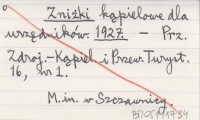 Zniżki kąpielowe dla
urzędników. 1927. – Prz.
Zdroj.-Kąpiel. i Przew. Turyst.
16, nr 1.
M. in. w Szczawnicy.